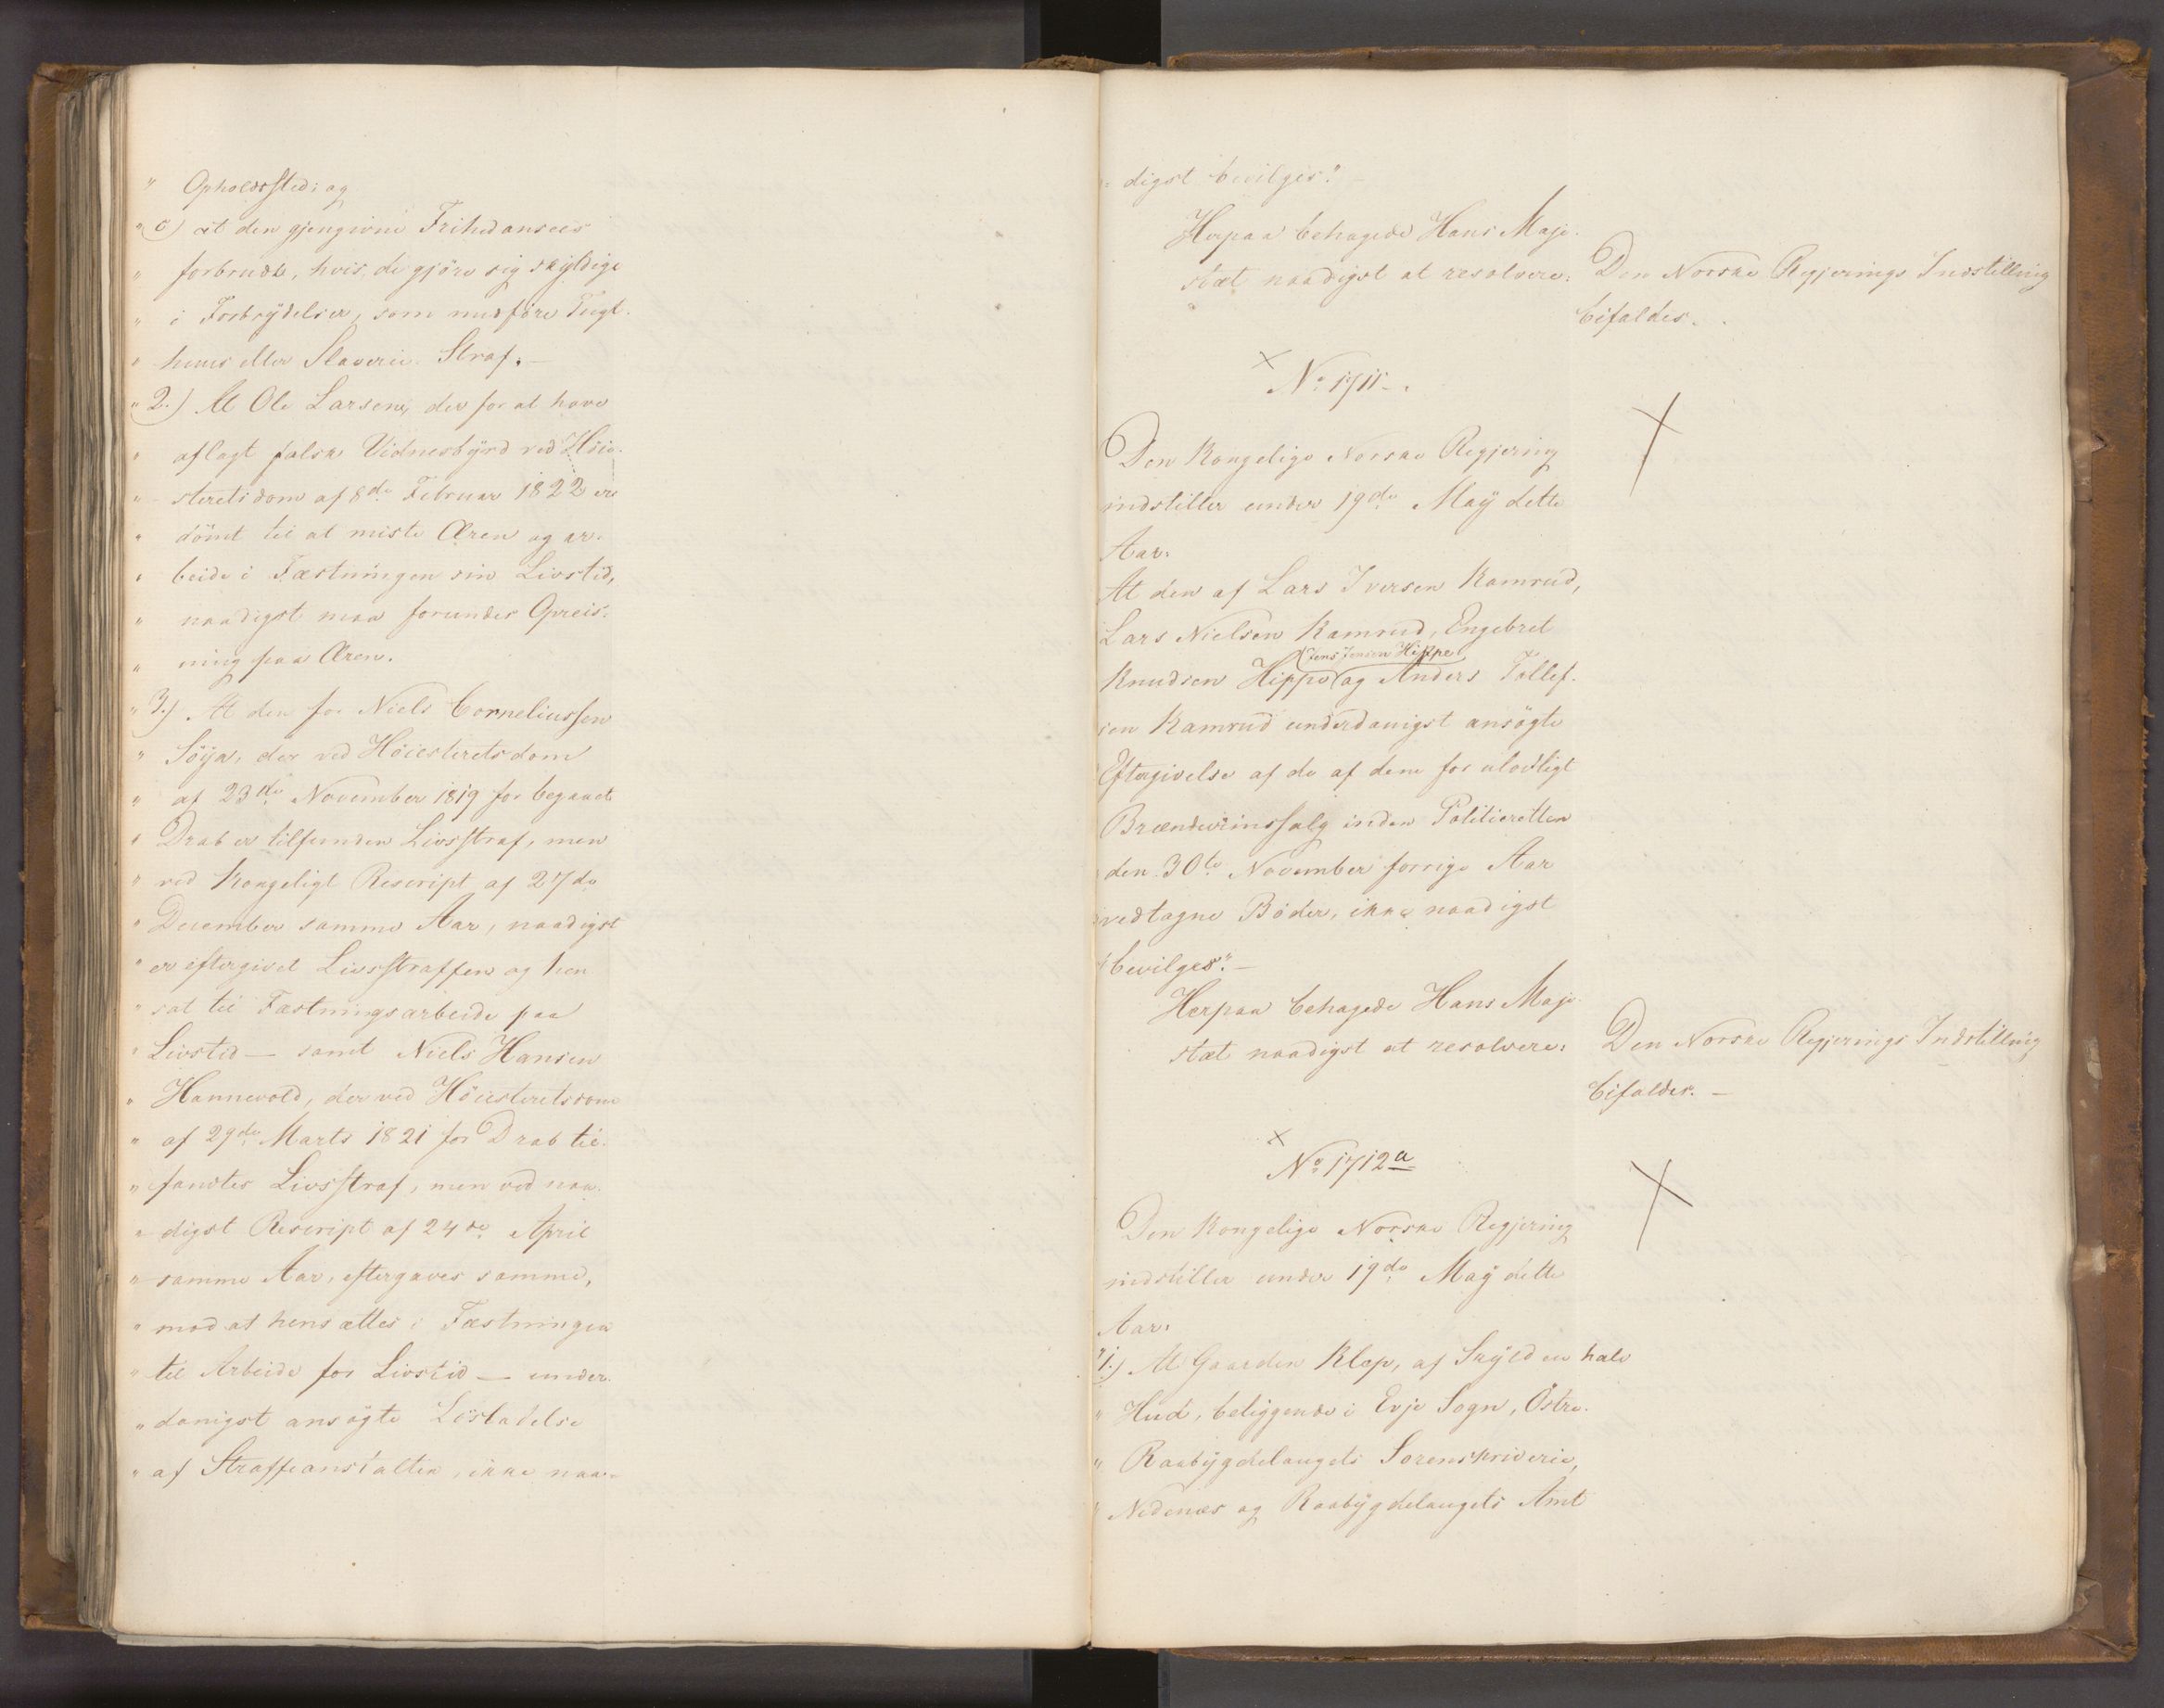 " Opholdssted; og
" c) at den gjengivne Frihed ansees
" forbrudt, hvis de gjöre sig skÿldige
" i Forbrÿdelser, som medföre Tugt-
" huus eller Slaverie Straf. —
" 2.) At Ole Larsen, der for at have
" aflagt falsk Vidnesbÿrd ved Höie-
" steretsdom af 8de Februar 1822 er
" dömt til at miste Æren og ar-
" beide i Fæstningen sin Livstid,
" naadigst maa forundes Opreis-
" ning paa Æren.
" 3.) At den for Niels Corneliussen
" Söÿa, der ved Höiesteretsdom
" af 23de November 1819 for begaaet
" Drab er tilfunden Livsstraf, men
" ved Kongeligt Rescript af 27de
" December samme Aar, naadigst
" er eftergivet Livsstraffen og hen
" sat til Fæstningsarbeide paa
" Livstid — samt Niels Hansen
" Hannevold, der ved Höiesteretsdom
" af 29de Marts 1821 for Drab til-
" fandtes Livsstraf, men ved naa-
" digst Rescript af 24de April
" samme Aar, eftergaves samme,
" mod at hensættes i Fæstningen
" til Arbeide for Livstid — under-
" danigst ansögte Lösladelse
" af Straffeanstalten, ikke naa-
" digst bevilges." —
Herpaa behagede Hans Maje-
stæt naadigst at resolvere:
Den Norske Regjerings Indstilling
bifaldes.
No 1711.
Den Kongelige Norske Regjering
indstiller under 19de Maÿ dette
Aar:
At den af Lars Iversen Kamrud,
Lars Nielsen Kamrud, Engebret
Jens Jensen Hippe
Knudsen Hippe og Anders Tollef-
sen Kamrud underdanigst ansögte
Eftergivelse af de af dem for ulovligt
Brændeviinssalg inden Politieretten
den 30te November forrige Aar
vedtagne Böder, ikke naadigst
bevilges." —
Herpaa behagede Hans Maje-
stæt naadigst at resolvere:
Den Norske Regjerings Indstilling
bifaldes. —
No 1712 a
Den Kongelige Norske Regjering
indstiller under 19de Maÿ dette
Aar:
" 1.) At Gaarden Klep, af Skÿld en halv
" Hud, beliggende i Evje Sogn, Östre-
" Raabÿgdelaugets Sorenskriverie,
" Nedenæs og Raabÿgdelaugets Amt